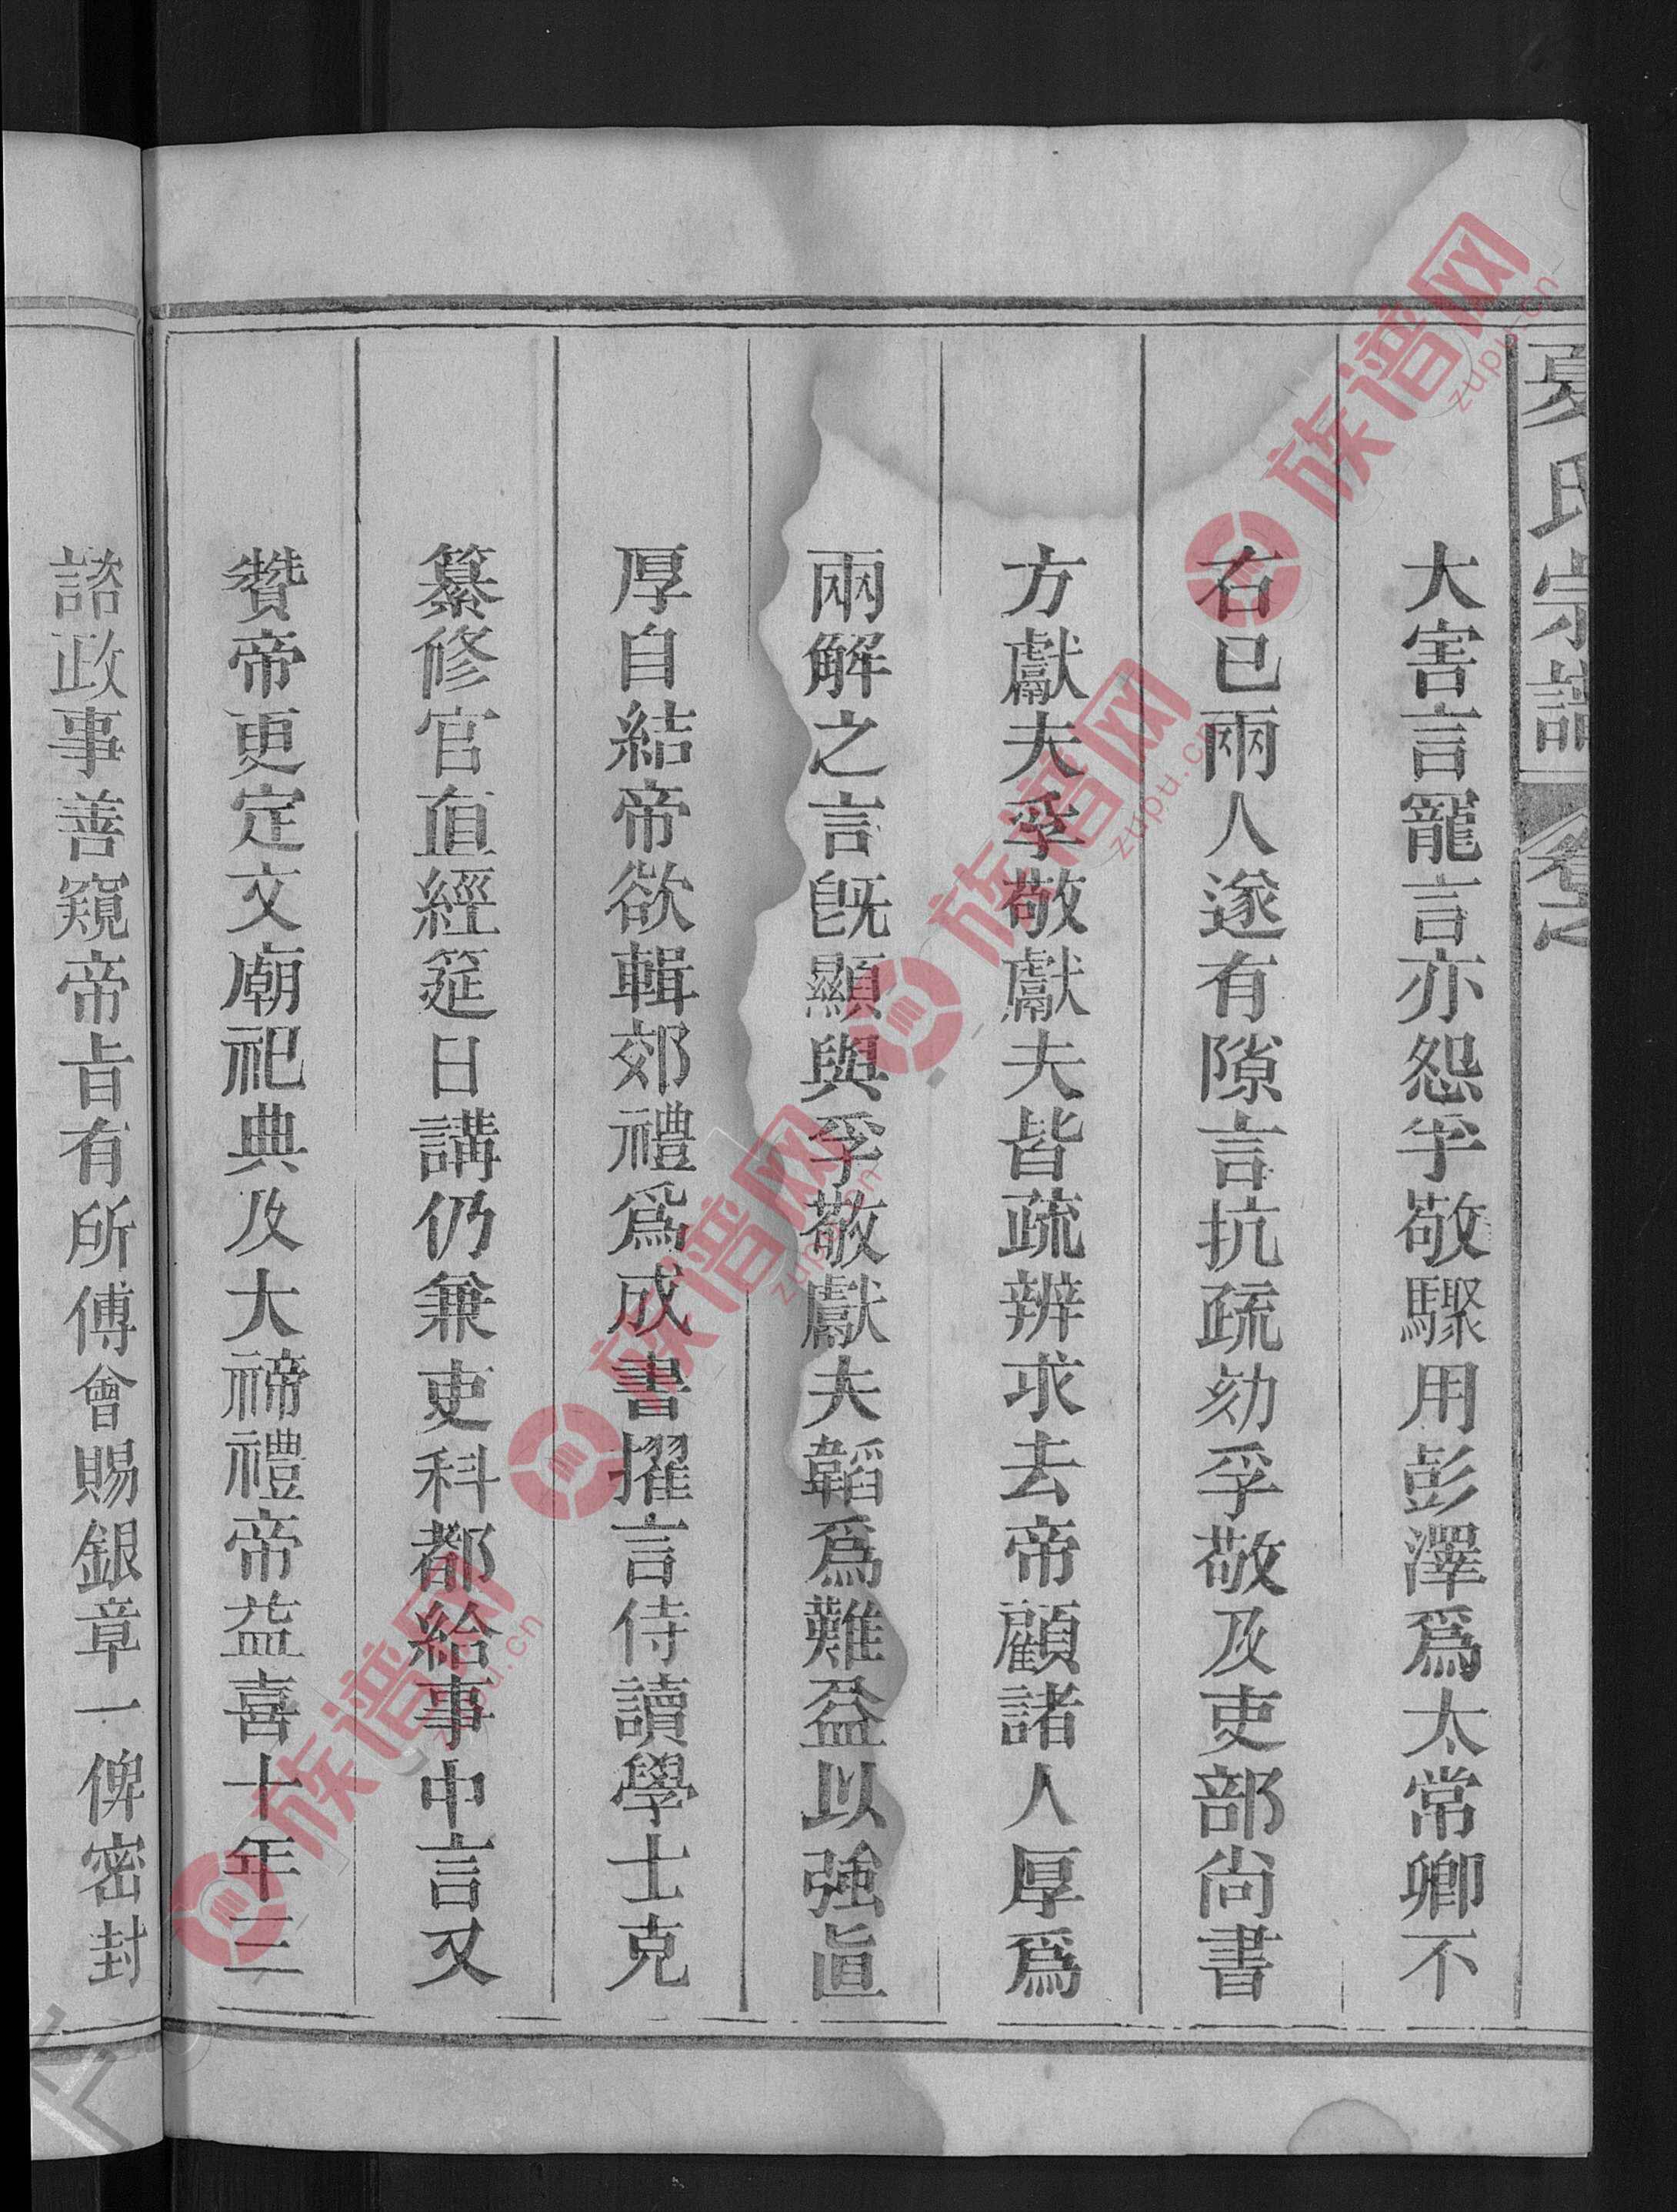 夏氏宗譜
卷之
大害言寵言亦怨孚敬驟用彭澤爲太常卿不
右已兩人遂有隙言抗疏劾孚敬及吏部尚書
方獻夫孚敬獻夫皆疏辨求去帝顧諸人厚爲
兩解之言旣顯與孚敬獻夫韜爲難益以強直
厚自結帝欲輯郊禮爲成書擢言侍讀學士克
纂修官直經筵日講仍兼吏科都給事中言又
贊帝更定文廟祀典及大禘禮帝益喜十年三
諮政事善窺帝旨有所傅會賜銀章一俾密封
族谱网
zupu.cn
族谱网
zupu.cn
族谱网
zupu.cn
族谱网
zupu.cn